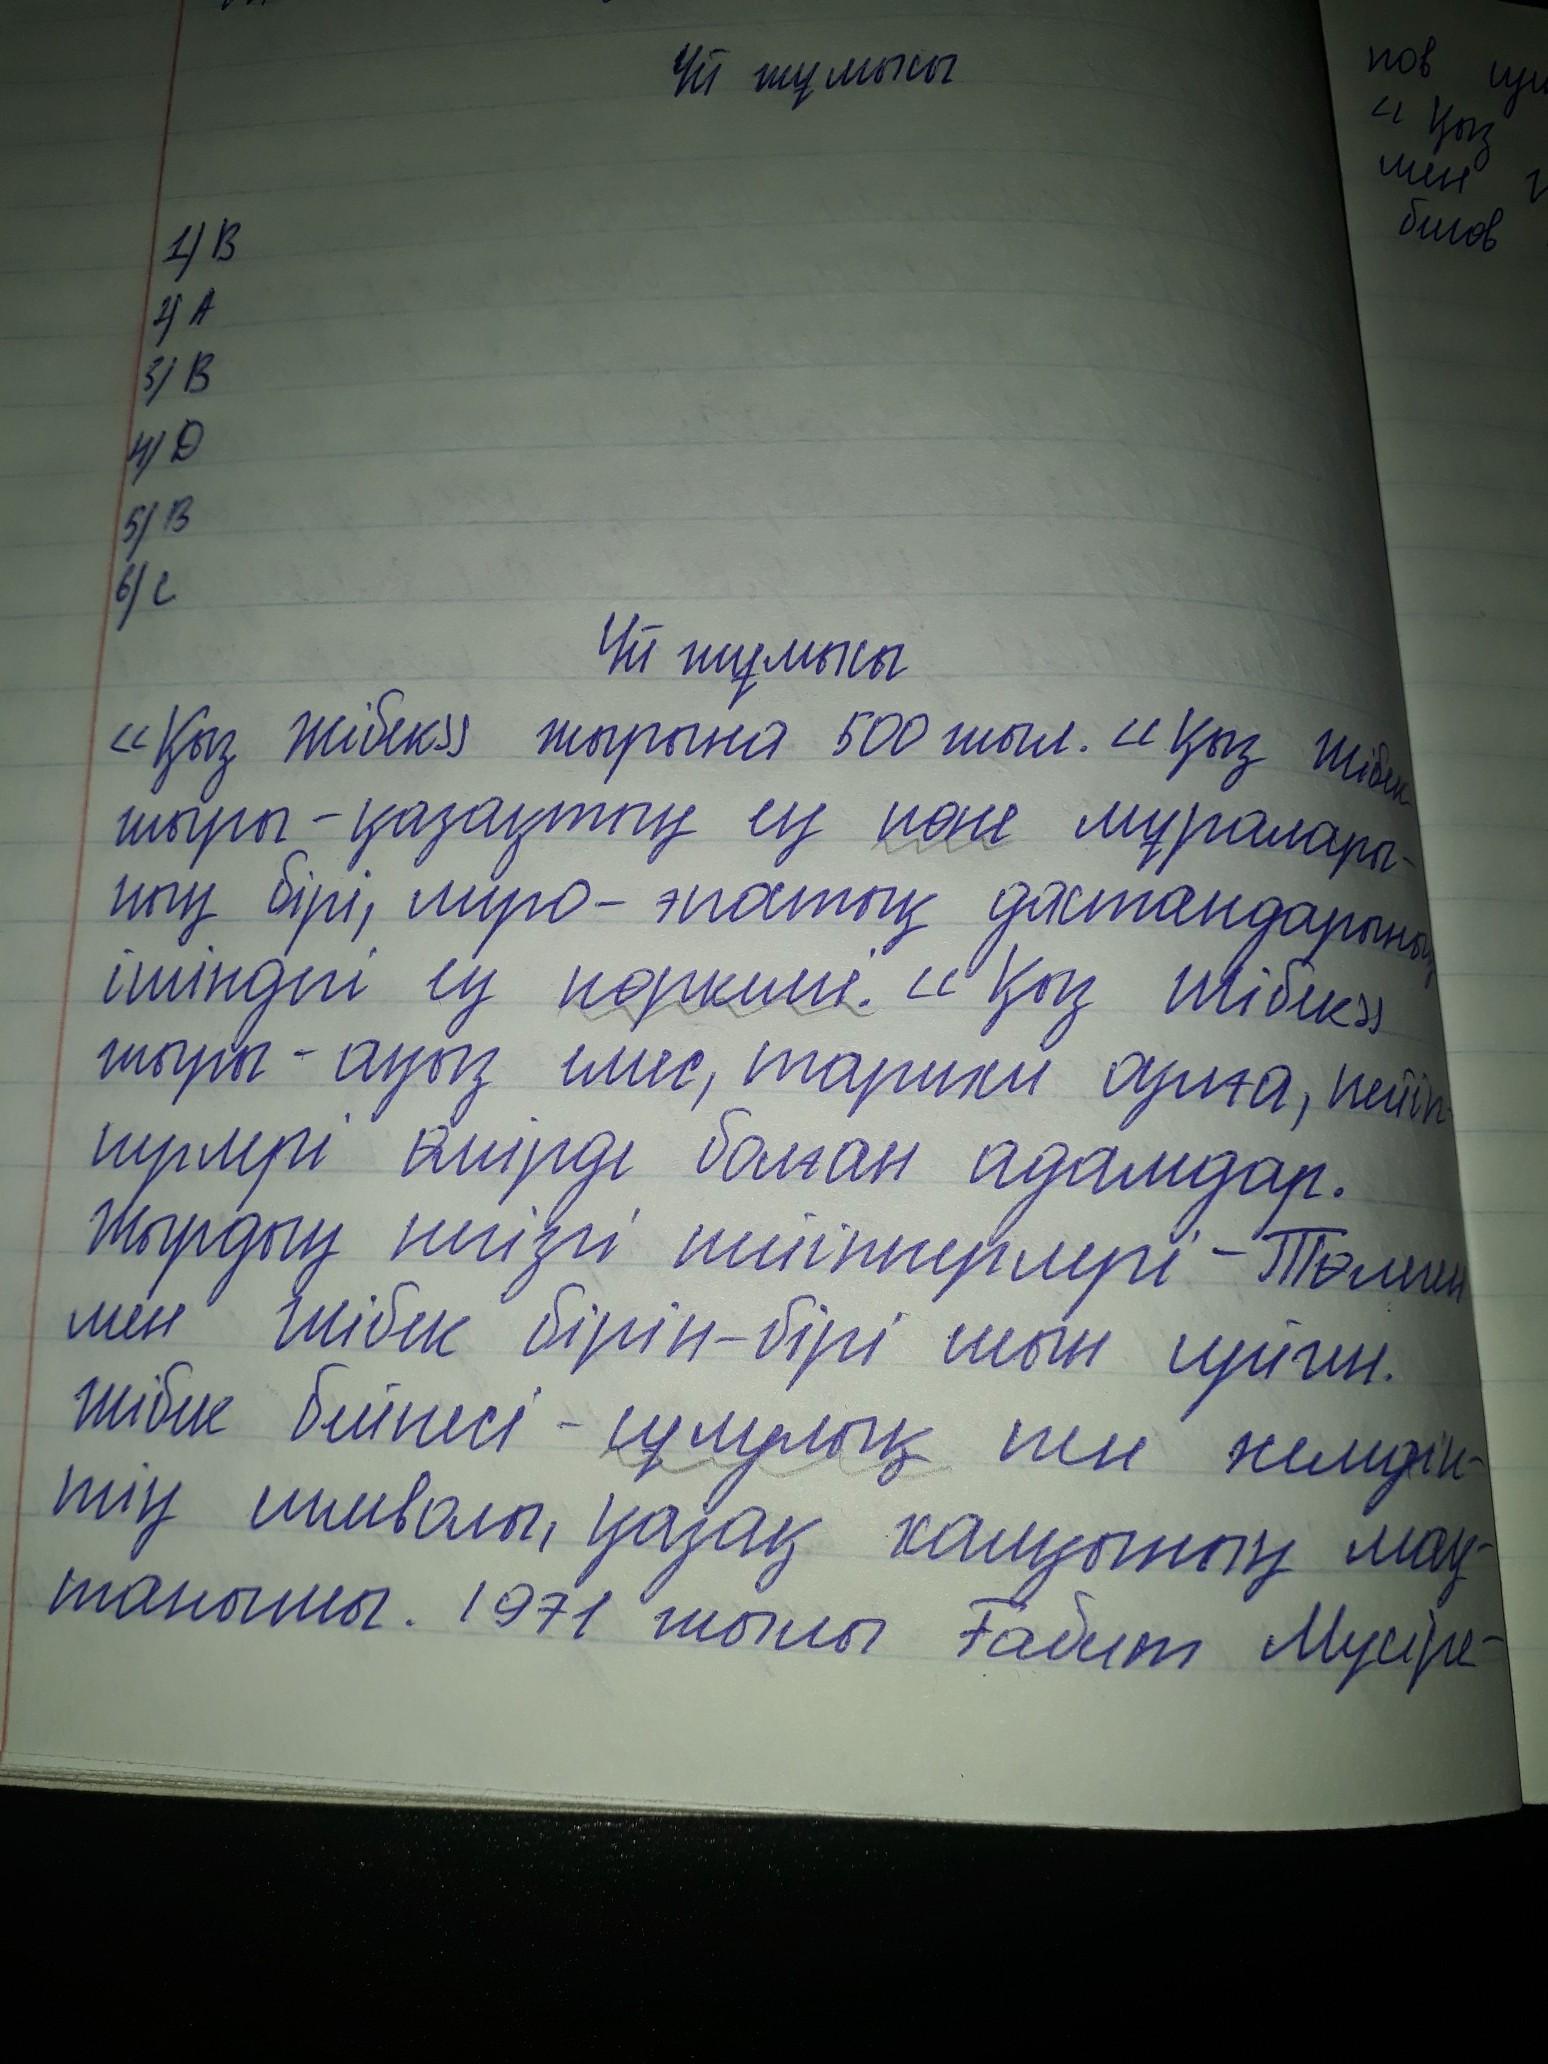 Үй жұмысы
1) В
2) А
3) В
4) D
5) В
6) С
Үй жұмысы
«Қыз Жібек» жырына 500 жыл. «Қыз Жібек
жыры - қазақтың ең көне мұралары-
ның бірі, лиро - эпостық дастандарының
ішіндегі ең көркемі. «Қыз Жібек»
жыры - аңыз емес, тарихи оқиға, кейіп-
керлері өмірде болған адамдар.
Жырдың негізгі кейіпкерлері - Төлеген
мен Жібек бірін-бірі шын сүйген.
Жібек бейнесі - сұлулық пен кемдік-
тің символы, қазақ халқының мақ-
танышы. 1971 жылы Ғабит Мүсіре-
пов
«Қыз
мен